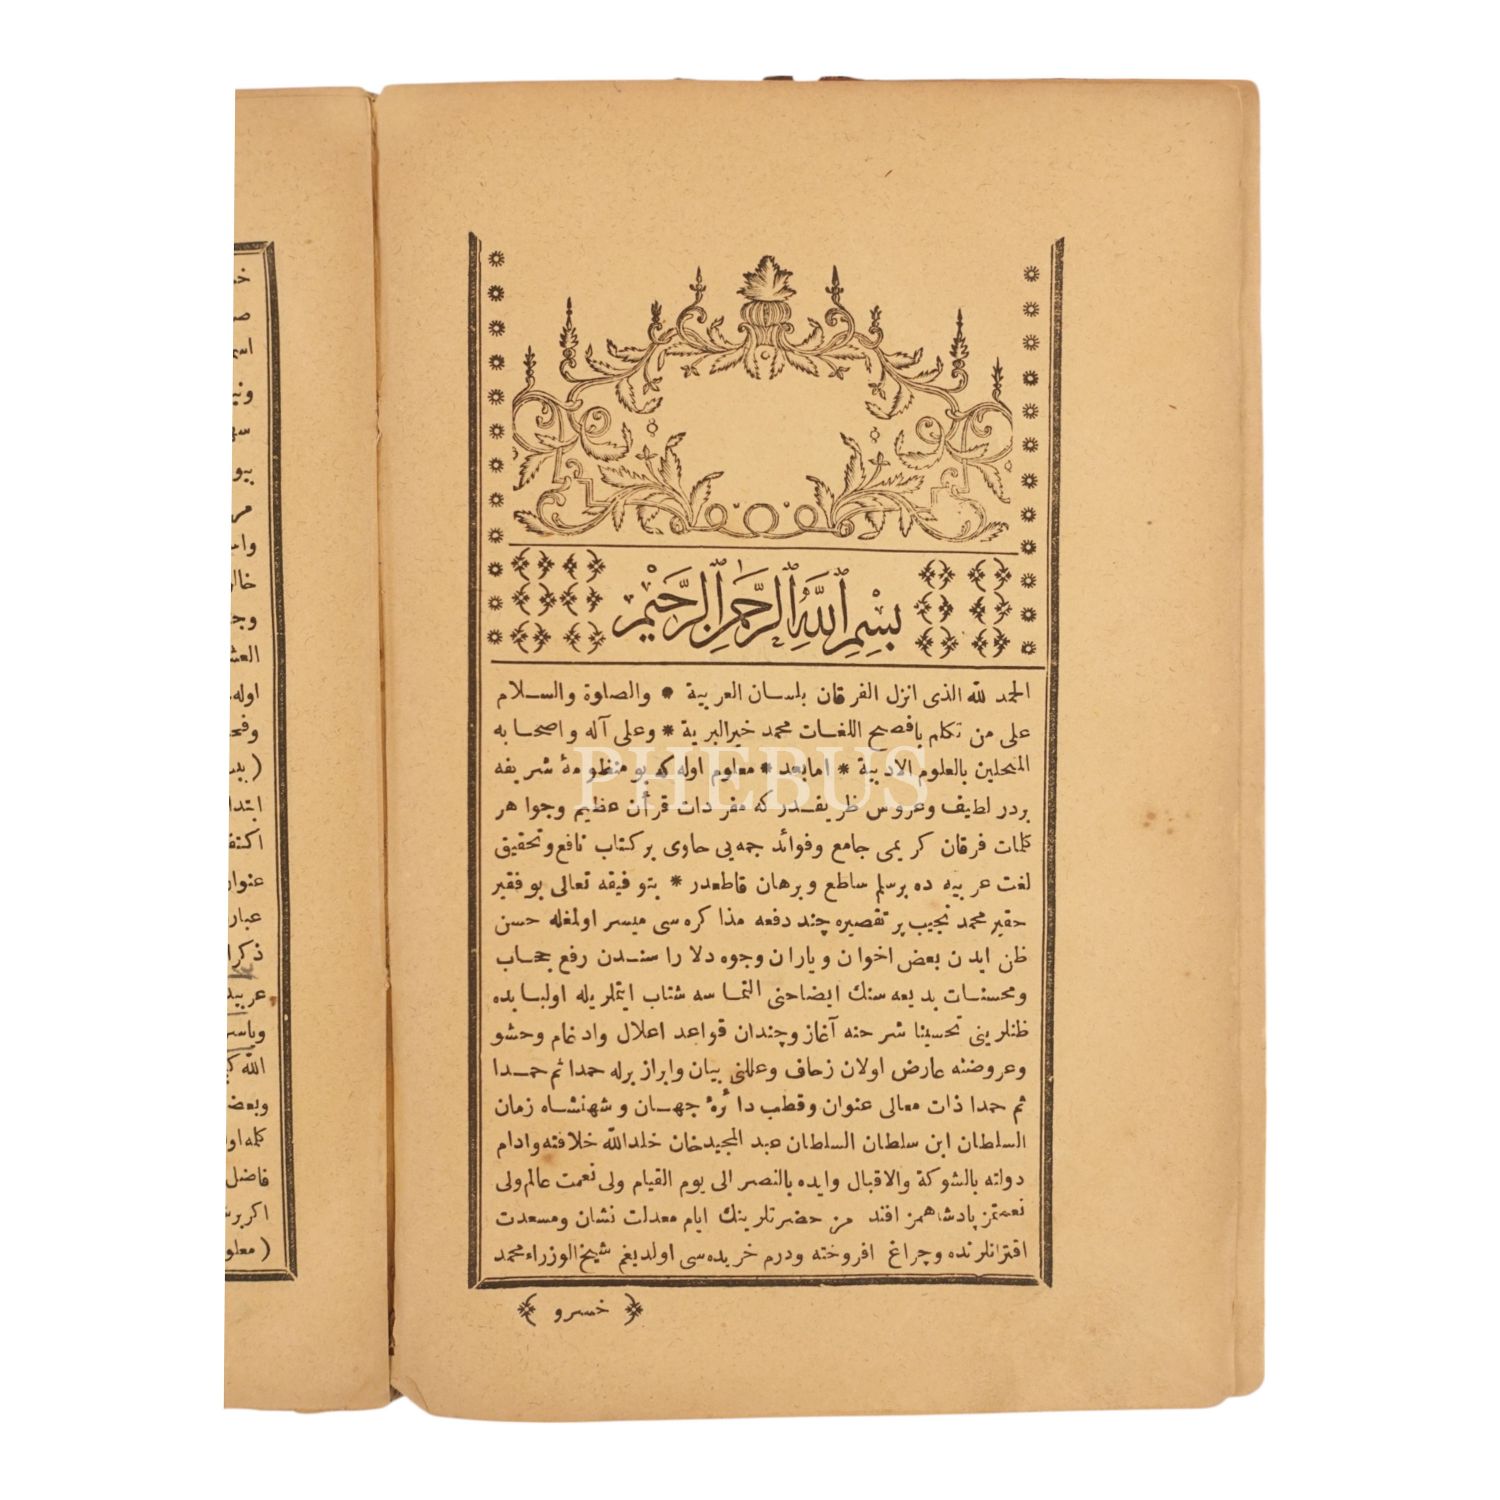 بِسْمِ اللّٰهِ الرَّحْمٰنِ الرَّحِيْمِ
الحمد لله الذى انزل الفرقان بلسان العربية * والصلوة والسلام
على من تكلم بافصح اللغات محمد خير البرية * وعلى آله واصحابه
المتحلين بالعلوم الادبية * امابعد * معلوم اوله كه بو منظومهٔ شريفه
بردر لطيف وعروس ظريفدر كه مفردات قرآن عظيم وجواهر
كلمات فرقان كريمى جامع وفوائد جمه يى حاوى بر كتاب نافع وتحقيق
لغت عربيه ده برسلم ساطع وبرهان قاطعدر * بتوفيقه تعالى بو فقير
حقير محمد نجيب پر تقصيره چند دفعه مذاكره سى ميسر اولمغله حسن
ظن ايدن بعض اخوان وياران وجوه دلاراسندن رفع حجاب
ومحسنات بديعه سنك ايضاحنى التماسه شتاب ايتملريله اولبابده
ظنلرينى تحسينا شرحنه آغاز وچندان قواعد اعلال وادغام وحشو
وعروضنه عارض اولان زحاف وعللنى بيان وابراز برله حمدا ثم حمدا
ثم حمدا ذات معالى عنوان وقطب دائرهٔ جهان وشهنشاه زمان
السلطان ابن سلطان السلطان عبد المجيد خان خلد الله خلافته وادام
دولته بالشوكة والاقبال وايده بالنصر الى يوم القيام ولى نعمت عالم ولى
نعمتمز پادشاهمز افندمز حضرتلرينك ايام معدلت نشان ومسعدت
اقترانلرنده وچراغ افروخته ودرم خريده سى اولديغم شيخ الوزراء محمد
خسرو
PHEBUS